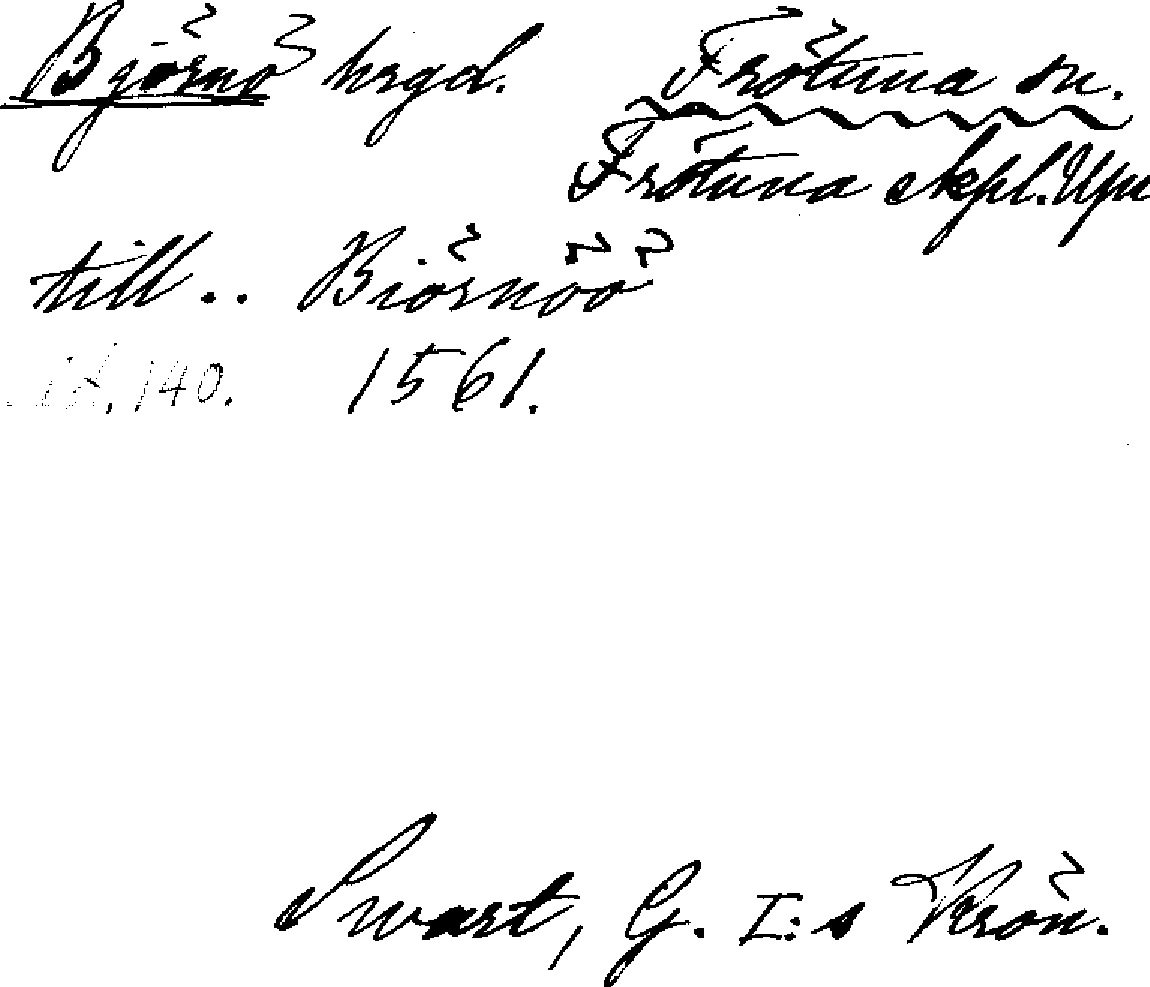 Björnö hrgd. Frötuna sn.
Frötuna skpl. Upl
till.. Biörnöö
id. 140. 1561.
Swart, G. I:s Krön.